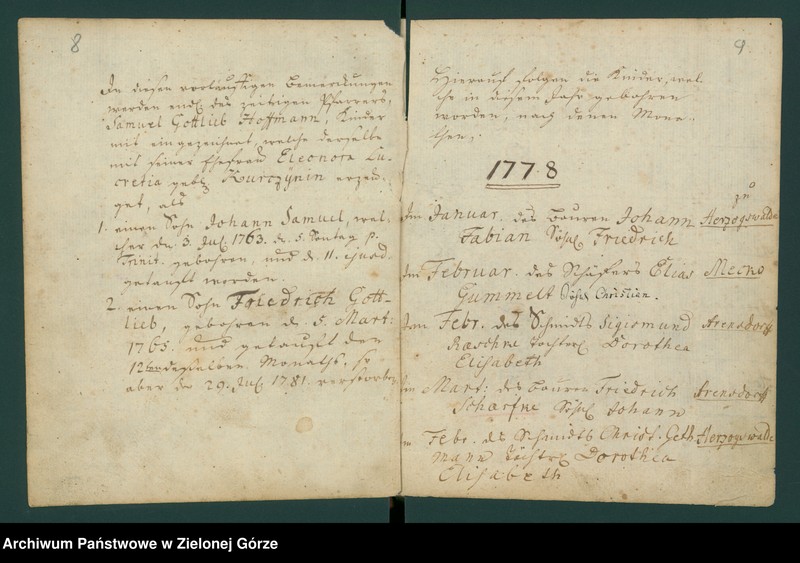 8
In diesen vorläuffigen Bemerckungen
werden endl. des zeitigen Pfarrers,
Samuel Gottlieb Hoffmann, Kinder
mit eingezeichnet, welche derselbe
mit seiner Ehefrau Eleonora Lu-
cretia gebl. Kurczÿnin erzeu-
get, als
1. einen Sohn Johann Samuel, wel-
cher d. 3. Jul. 1763. d. 5. Sontag p.
Trinit. gebohren, und d. 11. ejusd.
getauft worden.
2. einen Sohn Friedrich Gott-
lieb, gebohren d. 5. Mart:
1765. und getauft den
12ten desselben Monaths, so
aber d. 29. Jul. 1781. verstorben
9.
Hierauf folgen die Kinder, wel
che in diesem Jahr gebohren
worden, nach denen Mona-
then,
1778
zu
Im Januar. des Bauren Johann Herzogswalde
Fabian Söhnl. Friedrich
Im Februar. des Schäfers Elias Mecko
Gummelt Söhnl. Christien.
Im Febr. des Schmidts Sigismund Arensdorff
Raschke Töchterl. Dorothea
Elisabeth
Im Mart: des Bauren Friedrich Arensdorff
Scharfke Söhnl. Johann
Febr. des Schmidts Christ. Geth Herzogswalde
mann Töchterl. Dorothea
Elisabeth
Archiwum Państwowe w Zielonej Górze